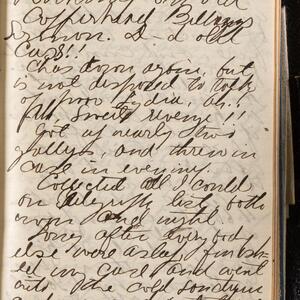 old
Copperhead Billings
sermon. D—d old
Cuss!!
Chas down again, but
is not disposed to talk
of poor Lydia, ah!
Ah, Sweet revenge!!
Got up nearly two
galleys, and threw in
case in evening.
Collected all I could
on delinquent list, both
noon and night.
after everybody
else were asleep finish-
ed my case and went
out the cold